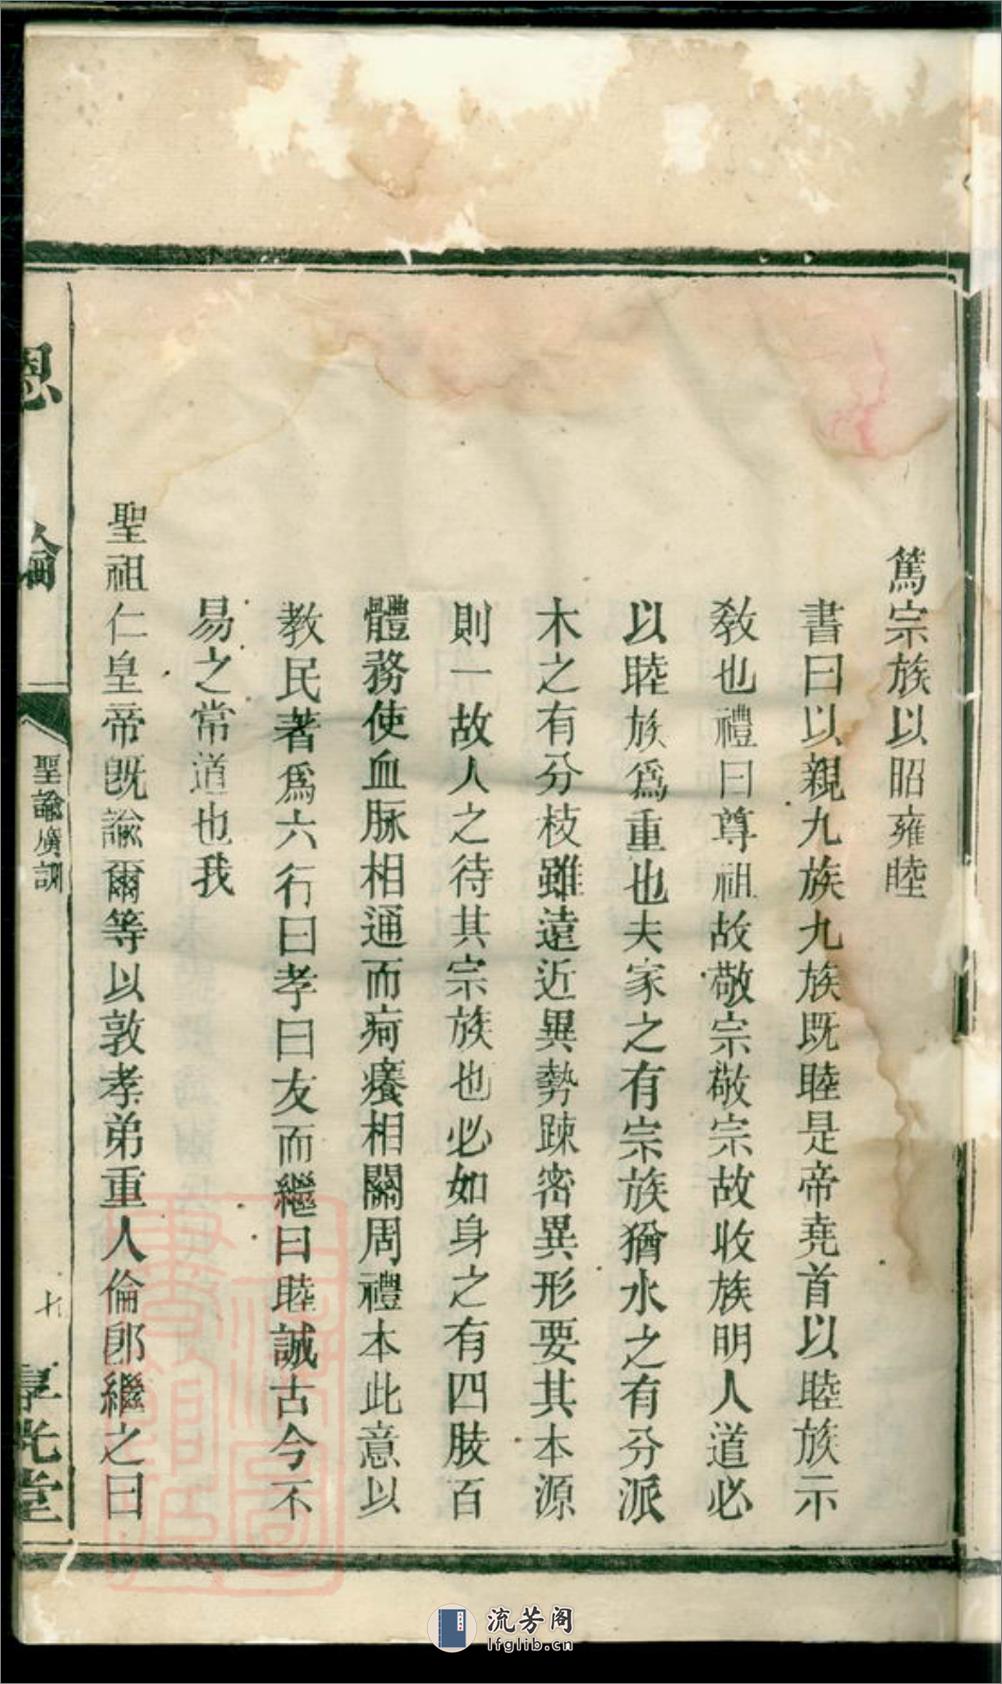 篤宗族以昭雍睦
書曰以親九族九族既睦是帝堯首以睦族示
敎也禮曰尊祖故敬宗敬宗故收族明人道必
以睦族爲重也夫家之有宗族猶水之有分派
木之有分枝雖遠近異勢踈密異形要其本源
則一故人之待其宗族也必如身之有四肢百
體務使血脈相通而痾癢相關周禮本此意以
敎民著爲六行曰孝曰友而繼曰睦誠古今不
易之常道也我
聖祖仁皇帝既諭爾等以敦孝弟重人倫卽繼之曰
恩
綸
一
聖諭廣訓
光堂
流芳阁
lfglib.cn